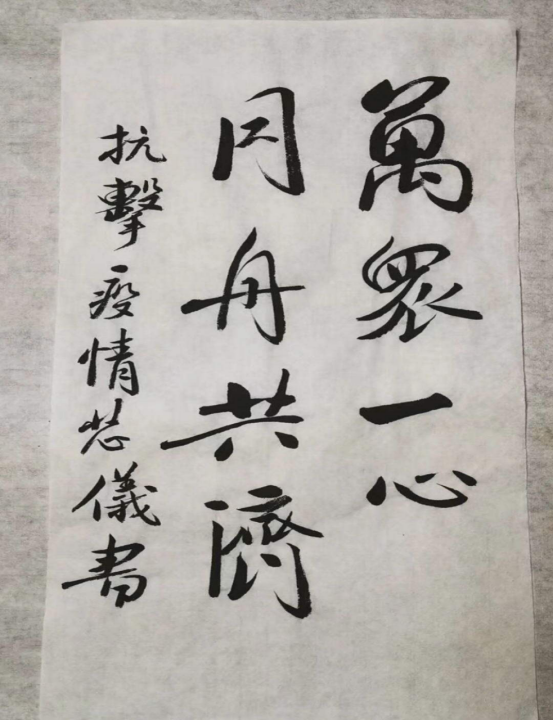 萬衆一心
同舟共濟
抗擊疫情 儀書